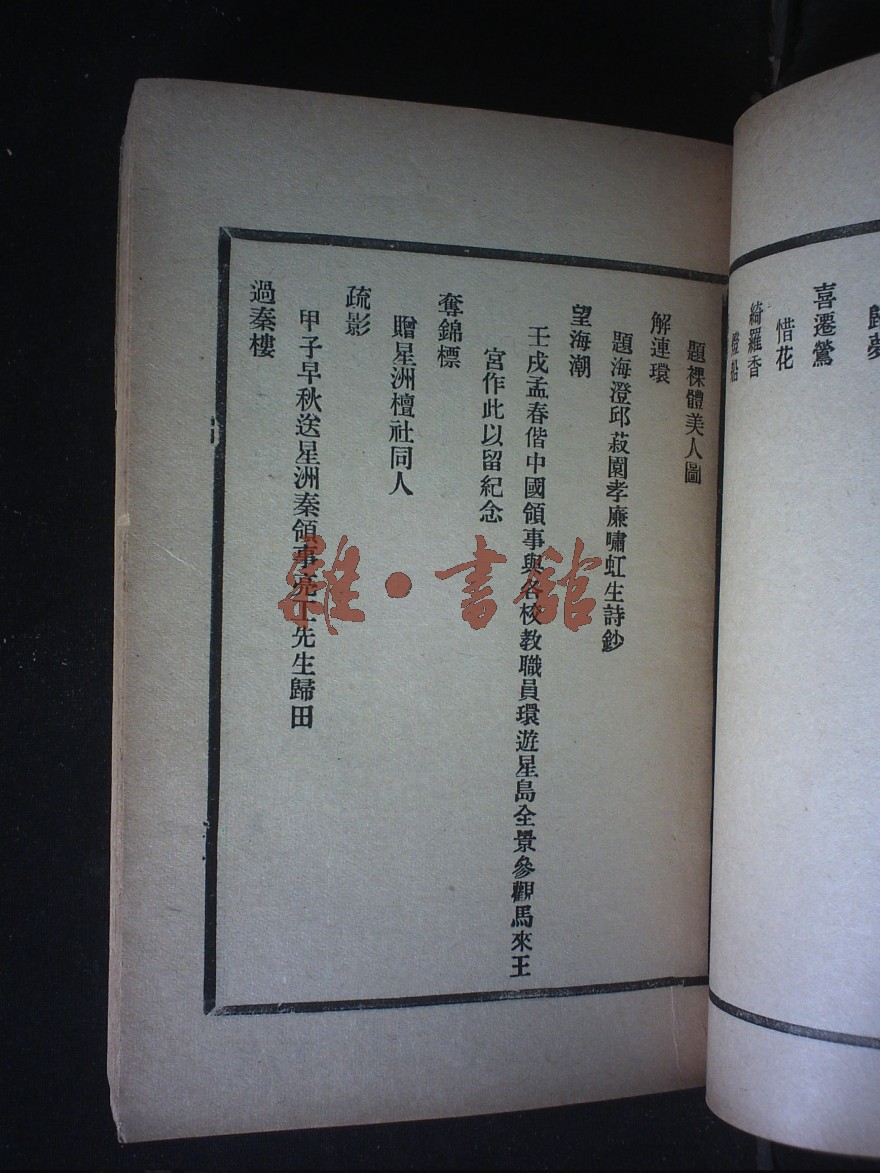 歸夢
喜遷鶯
惜花
綺羅香
燈船
題裸體美人圖
解連環
題海澄邱菽園孝廉嘯虹生詩鈔
望海潮
壬戌孟春偕中國領事與各校教職員環遊星島全景參觀馬來王
宮作此以留紀念
奪錦標
贈星洲檀社同人
疏影
甲子早秋送星洲秦領事亮工先生歸田
過秦樓
雜·書館